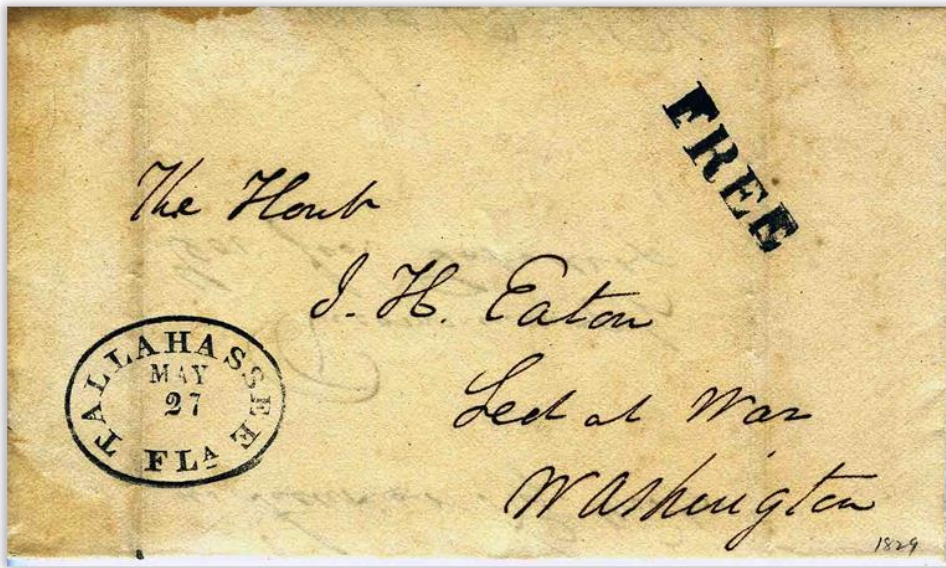 FREE
The Honb
J. H. Eaton
Sect at War
Washington
TALLAHASSEE
MAY
27
FLA
1829